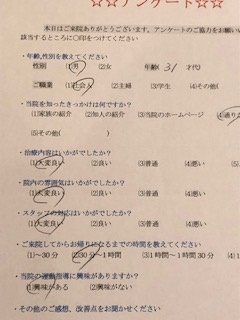 ☆☆アンケート☆☆
本日はご来院ありがとうございます。アンケートのご協力をお願い
該当するところに○印をつけてください
・年齢,性別を教えてください
性別 (1)男 (2)女 年齢( 31 )才代
ご職業 (1)社会人 (2)主婦 (3)学生 (4)その他(
・当院を知ったきっかけは何ですか?
(1)家族の紹介 (2)知人の紹介 (3)当院のホームページ (4)通り
(5)その他( )
・治療内容はいかがでしたか?
(1)大変良い (2)良い (3)普通 (4)悪い
・院内の雰囲気はいかがでしたか?
(1)大変良い (2)良い (3)普通 (4)悪い
・スタッフの対応はいかがでしたか?
(1)大変良い (2)良い (3)普通 (4)悪い
・ご来院してからお帰りになるまでの時間を教えてください
(1)～30分 (2)30分～1時間 (3)1時間～1時間30分 (4)
・当院の運動指導に興味がありますか?
(1)興味がある (2)興味がない
・その他のご感想、改善点をお聞かせください